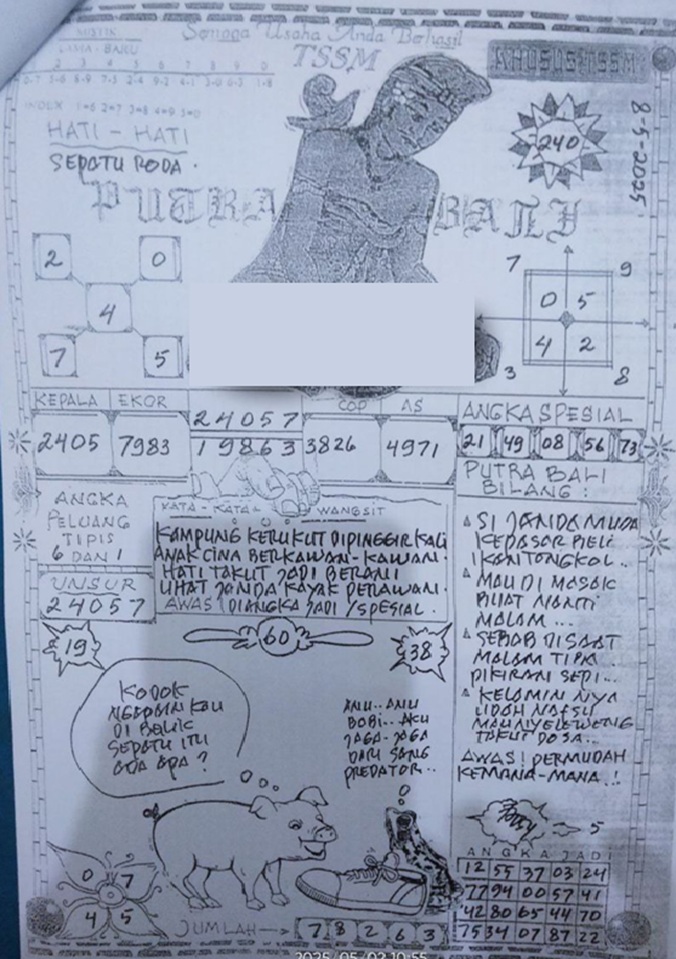 MISTIK
LAMA - BARU
Semoga Usaha Anda Berhasil
TSSM
KHUSUS TSSM
1=6 2=7 3=8 4=9 5=0
HATI - HATI
SEPATU RODA.
240
8-5-2025
PUTRA BALI
2 0
4
7 5
7 9
0 5
4 2
3 8
KEPALA EKOR
2405 7983
24057
19863
COP AS
3826 4971
ANGKA SPESIAL
21 49 08 56 73
ANGKA
PELUANG
TIPIS
6 DAN 1
UNSUR
24057
KATA - KATA WANGSIT
KAMPUNG KERUKUT DIPINGGIR KALI
ANAK CINA BERKAWAN-KAWAN.
HATI TAKUT JADI BERANI
LIHAT JANDA KAYAK PERAWAN.
AWAS! DIANGKA JADI /SPESIAL.
PUTRA BALI
BILANG:
SI JANDA MUDA
KEPASAR BELI
IKAN TONGKOL..
MAU DI MASAK
BUAT NANTI
MALAM ...
SEBAB DISAAT
MALAM TIBA
PIKIRAN SEPI...
KELAMIN NYA
UDAH NAFSU
MAU NYELEWENG
TAKUT DOSA...
AWAS! PERMUDAH
KEMANA-MANA.!
19
60
38
KODOK
NGAPAIN KAU
DI BALIK
SEPATU ITU
ADA APA?
ANU.. ANU
BOBI.. AKU
JAGA-JAGA
DARI SANG
PREDATOR..
5
ANGKA JADI
12 55 37 03 24
77 94 00 57 41
42 80 65 44 70
75 34 07 87 22
0 7
4 5
JUMLAH → 7 8 2 6 3
2025/05/07 10:55